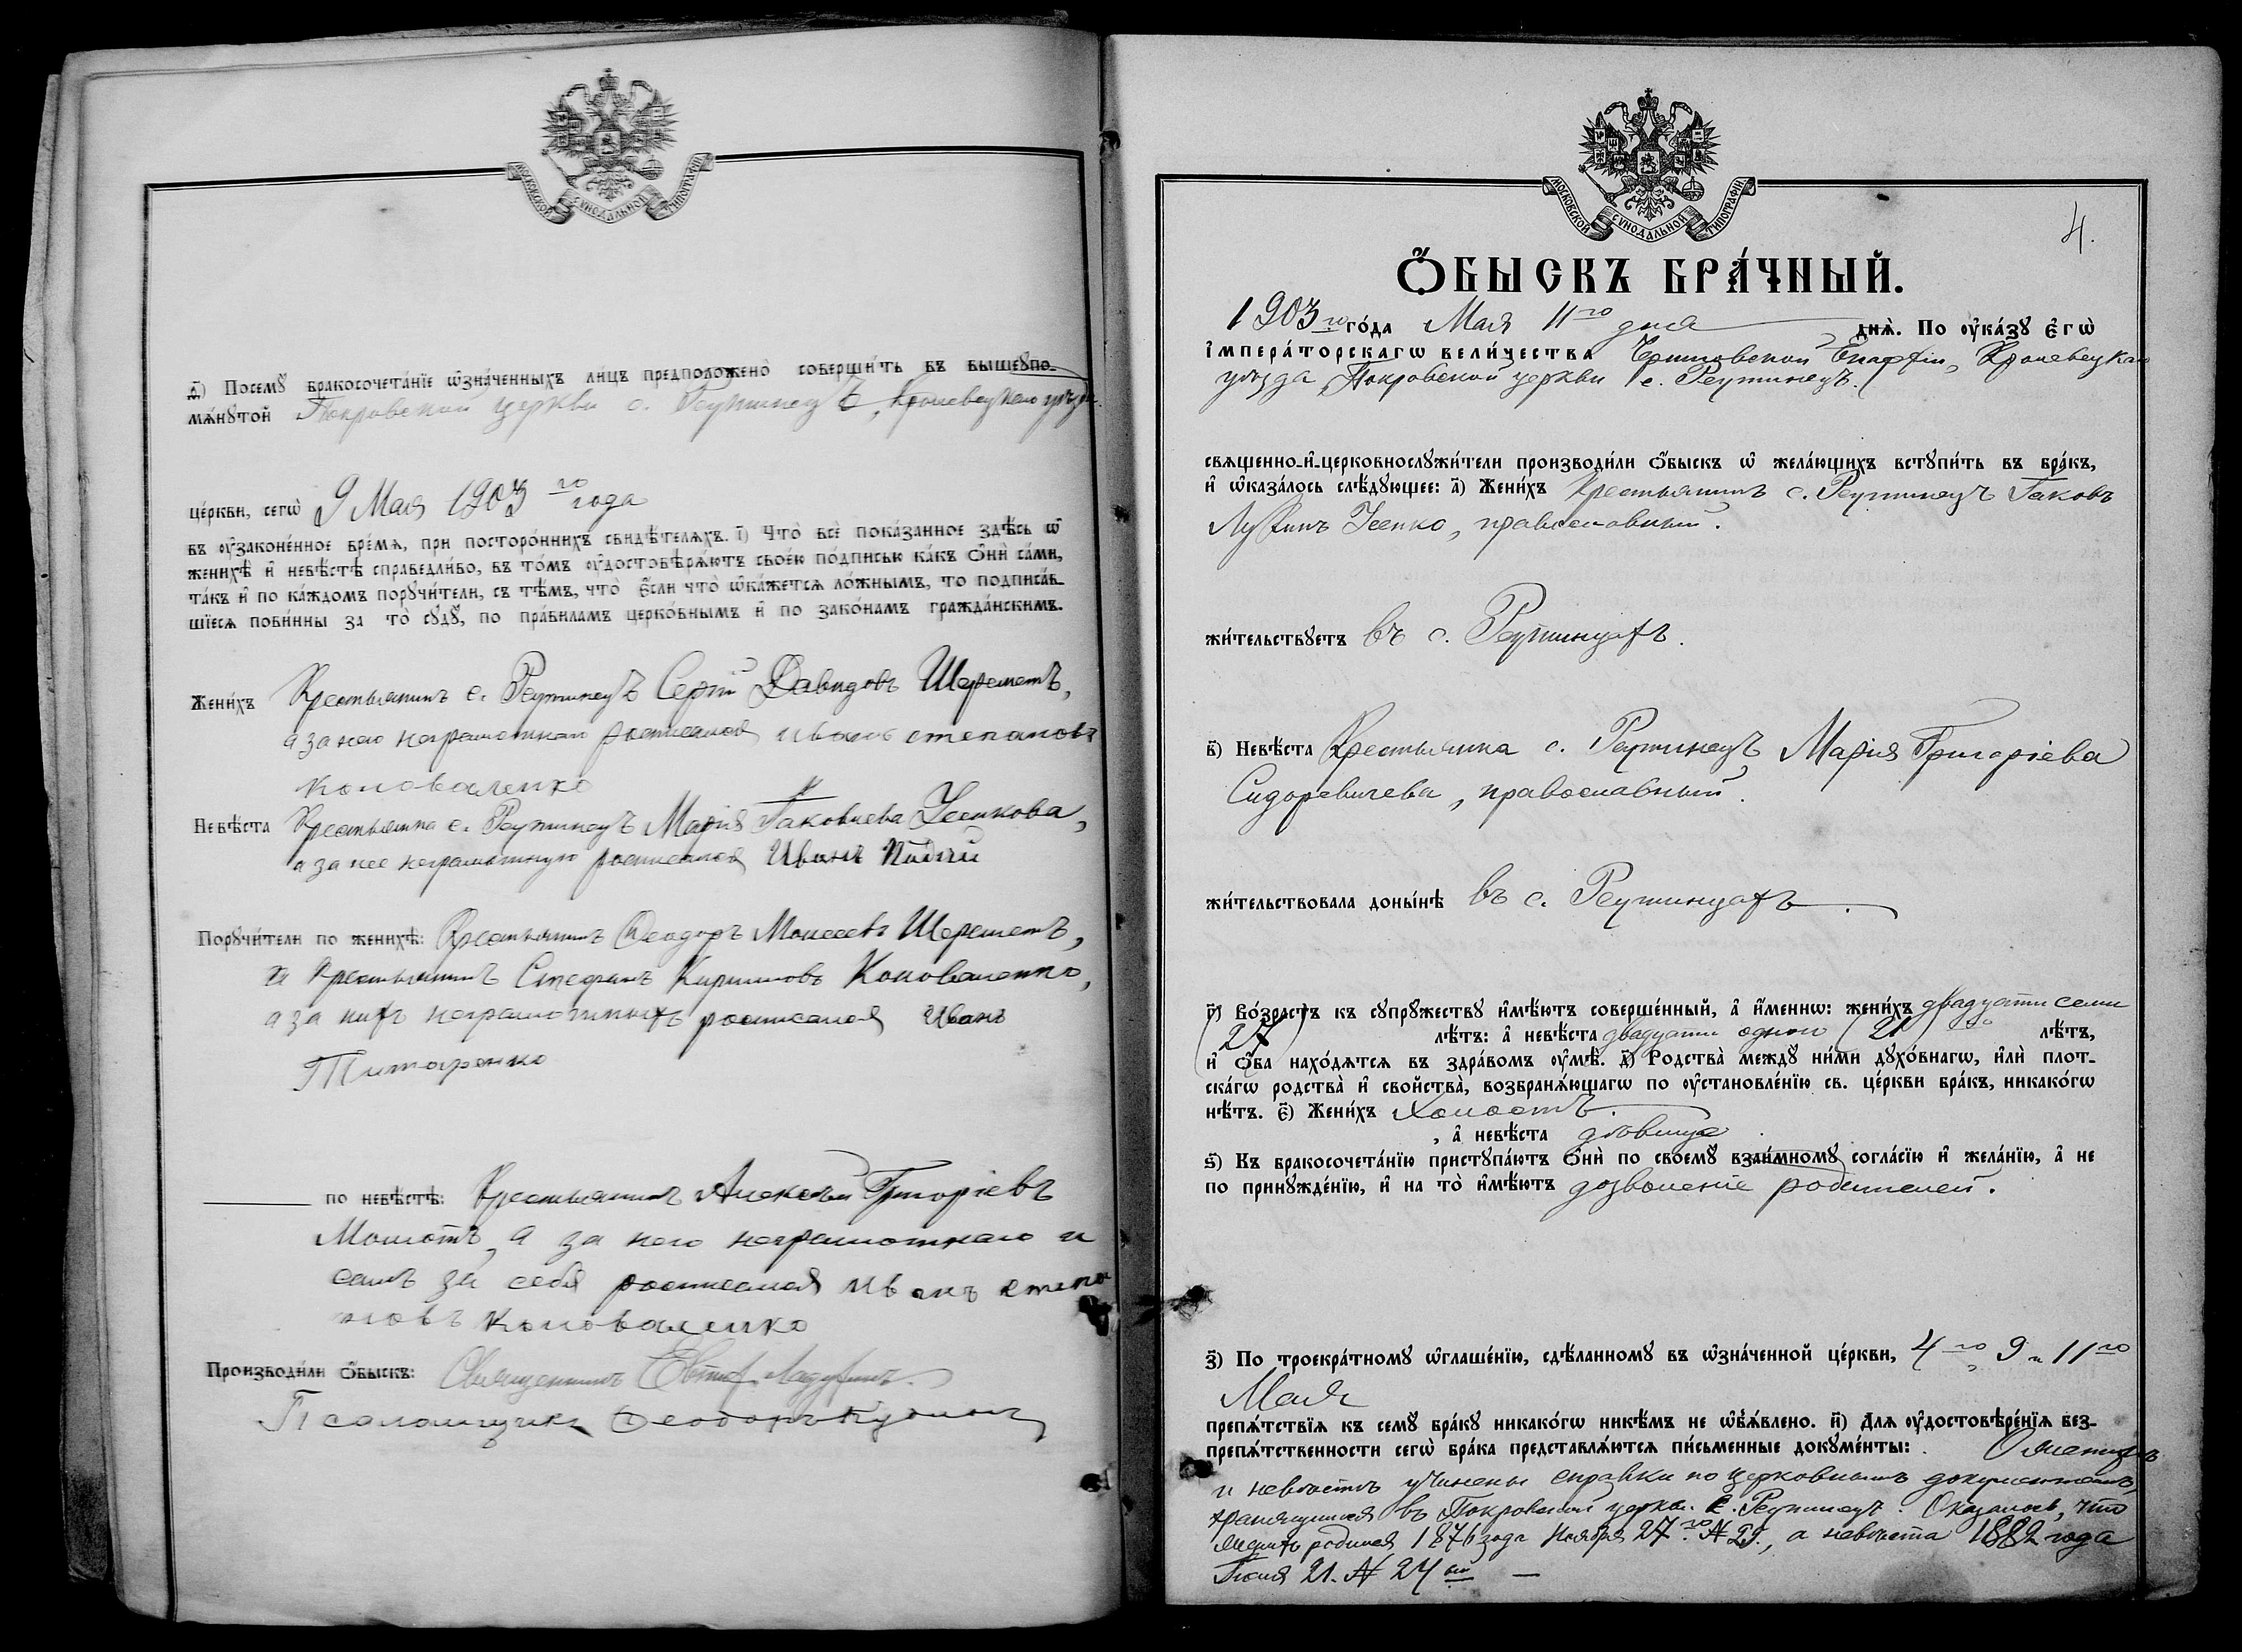 МОСКОВСКОЙ СѴНОДАЛЬНОЙ ТИПОГРАФІИ
д҃) Посемꙋ бракосочета́нїе ѡ҆зна́ченныхъ ли́цъ предположено̀ соверши́ть въ вышеꙋпо-
мѧ́нꙋтой Покровской церкви с. Реутинецъ, Кролевецкаго уѣзда
це́ркви, сегѡ̀ 9 Мая 1903 го года
въ ᲂу҆зако́ненное вре́мѧ, при посторо́ннихъ свидѣ́телѧхъ. і҃) Что̀ всѐ пока́занное здѣ́сь ѡ҆
женихѣ̀ и҆ невѣ́стѣ справедли́во, въ то́мъ ᲂу҆достовѣрѧ́ютъ свое́ю по́дписью ка́къ ѻ҆нѝ са́ми,
та́къ и҆ по ка́ждомъ порꙋчи́тели, съ тѣ́мъ, что̀ є҆́сли что̀ ѡ҆ка́жетсѧ ло́жнымъ, то подписа́в-
шїесѧ пови́нны за то̀ сꙋдꙋ̀, по пра́виламъ церко́внымъ и҆ по зако́намъ гражда́нскимъ.
Жени́хъ Крестьянинъ с. Реутинецъ Сергій Давидовъ Шереметъ,
а за него неграмотнаго росписался иванъ степановъ
коноваленко
Невѣ́ста Крестьянка с. Реутинецъ Марія Іаковлева Усенкова,
а за нее неграмотную росписался Иванъ
Порꙋчи́тели по женихѣ̀: Крестьянинъ Ѳеодоръ Моисеевъ Шереметъ,
и Крестьянинъ Стефанъ Кириловъ Коноваленко,
а за нихъ неграмотныхъ росписался Иванъ
Титаренко
по невѣ́стѣ: Крестьянинъ Алексѣй Григоріевъ
а за него неграмотнаго и
самъ за себя росписался иванъ степа
новъ коноваленко
Производи́ли ѻ҆́быскъ: Священникъ Евтиф.
Псаломщикъ Ѳеодоръ
МОСКОВСКОЙ СѴНОДАЛЬНОЙ ТИПОГРАФІИ
4.
Ѻ҆́БЫСКЪ БРА́ЧНЫЙ.
1903 го го́да Мая 11 го дня днѧ̀. По ᲂу҆ка́зꙋ є҆гѡ̀
і҆мпера́торскагѡ вели́чества Черниговской Епархіи, Кролевецкаго
уѣзда, Покровской церкви с. Реутинецъ.
свѧщенно-и҆-церковнослꙋжи́тели производи́ли ѻ҆́быскъ ѡ҆ жела́ющихъ встꙋпи́ть въ бра́къ,
и҆ ѡ҆каза́лось слѣ́дꙋющее: а҃) Жени́хъ Крестьянинъ с. Реутинецъ Іаковъ
Лукинъ Усенко, православный.
жи́тельствꙋетъ въ с. Реутинцахъ.
в҃) Невѣ́ста Крестьянка с. Реутинецъ Марія Григоріева
Сидоревичева, православный.
жи́тельствовала доны́нѣ въ с. Реутинцахъ.
г҃) Во́зрастъ къ сꙋпрꙋжествꙋ и҆мѣ́ютъ соверше́нный, а҆ и҆́менно: жени́хъ двадцати семи
(27) лѣ́тъ: а҆ невѣ́ста двадцати одного (21) лѣ́тъ,
и҆ ѻ҆́ба нахо́дѧтсѧ въ здра́вомъ ᲂу҆мѣ̀. д҃) Родства̀ междꙋ ни́ми дꙋхо́внагѡ, и҆лѝ плот-
ска́гѡ родства̀ и҆ свойства̀, возбранѧ́ющагѡ по ᲂу҆становле́нїю св. це́ркви бра́къ, никако́гѡ
нѣ́тъ. є҃) Жени́хъ холостъ.
, а҆ невѣ́ста дѣвица.
ѕ҃) Къ бракосочета́нїю пристꙋпа́ютъ ѻ҆нѝ по своемꙋ̀ взаи́мномꙋ согла́сїю и҆ жела́нїю, а҆ не
по принꙋжде́нїю, и҆ на то̀ и҆мѣ́ютъ дозволеніе родителей.
з҃) По троекра́тномꙋ ѡ҆глаше́нїю, сдѣ́ланномꙋ въ ѡ҆зна́ченной це́ркви, 4 го, 9 и 11 го
Мая
препѧ́тствїѧ къ семꙋ̀ бра́кꙋ никако́гѡ никѣ́мъ не ѡ҆б̾ѧ́влено. и҃) Длѧ ᲂу҆достовѣре́нїѧ без-
препѧ́тственности сегѡ̀ бра́ка представлѧ́ютсѧ пи́сьменные докꙋме́нты: О женихѣ
и невѣстѣ учинены справки по церковнымъ документамъ,
хранящимся въ Покровской церкви с. Реутинецъ. Оказалось, что
женихъ родился 1876 года Ноября 27 го № 29, а невѣста 1882 года
Іюля 21. № 24